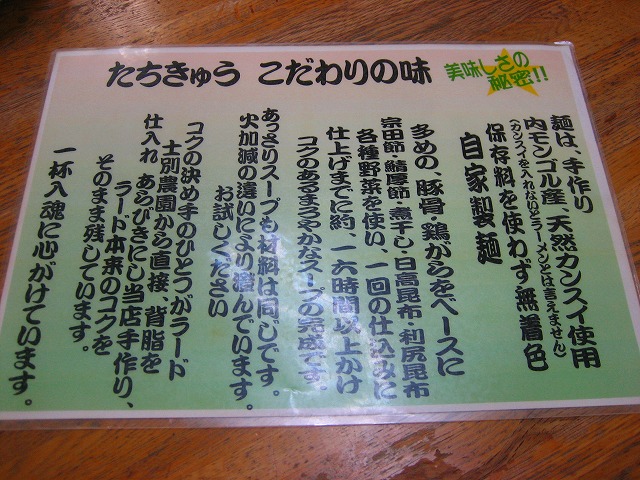 たちきゅう こだわりの味
美味しさの
秘密!!
麺は、手作り
内モンゴル産、天然カンスイ使用
(カンスイを入れないとラーメンとは言えません)
保存料を使わず無着色
自家製麺
多めの、豚骨・鶏がらをベースに
宗田節・鯖厚節・煮干し・日高昆布・利尻昆布
各種野菜を使い、一回の仕込みに
仕上げまでに約、一六時間以上かけ
コクのあるまろやかなスープの完成です。
あっさりスープも材料は同じです。
火加減の違いにより澄んでいます。
お試しください
コクの決め手のひとつがラード
士別農園から直接、背脂を
仕入れ あらびきにし当店手作り、
ラード本来のコクを
そのまま残しています。
一杯入魂に心がけています。